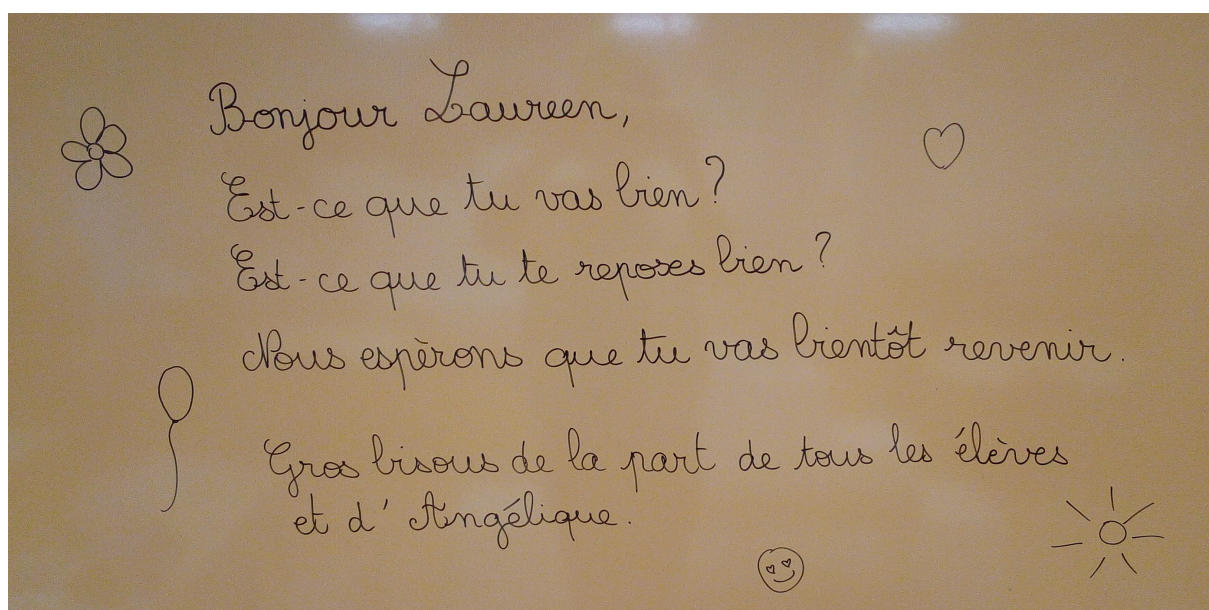 Bonjour Laureen,
Est-ce que tu vas bien ?
Est-ce que tu te reposes bien ?
Nous espèrons que tu vas bientôt revenir.
Gros bisous de la part de tous les élèves
et d' Angélique.